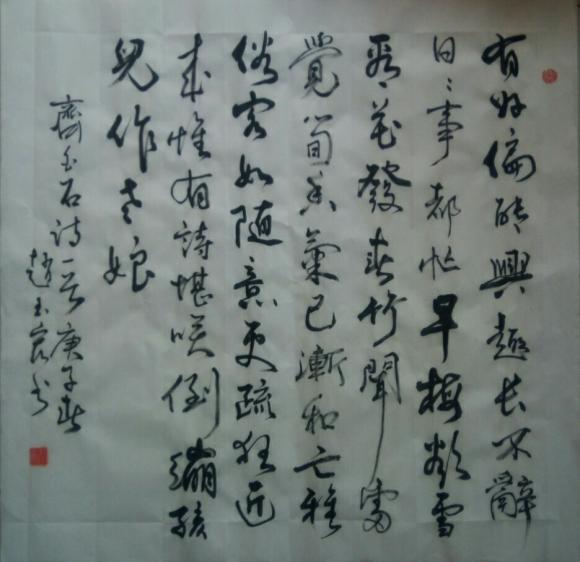 有好偏興趣長不辭
日日事都忙早梅欺雪
看花發春竹聞雷
覺筍香氣已漸和亡雅
俗客如隨意更疏狂近
來惟有詩堪笑倒繃孩
兒作老娘
齊白石詩一首庚子春
趙玉書